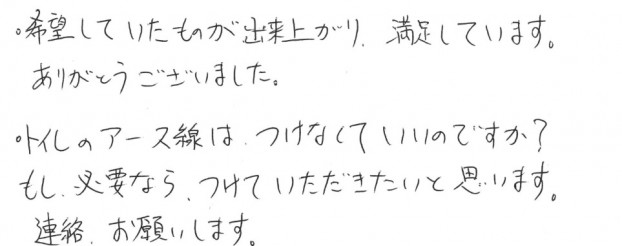 ・希望していたものが出来上がり、満足しています。
ありがとうございました。
・トイレのアース線は、つけなくていいのですか？
もし、必要なら、つけていただきたいと思います。
連絡、お願いします。